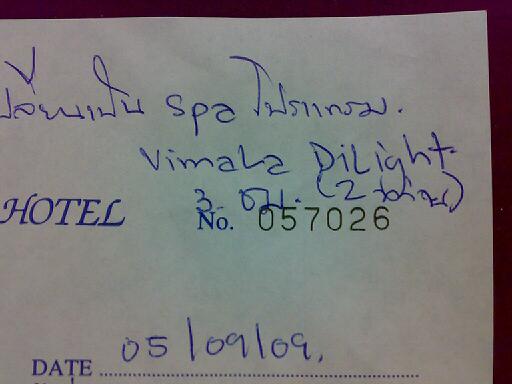 เปลี่ยนเป็น spa โปรแกรม.
Vimala Dilight
3 ชม. (2 ท่าน)
HOTEL No. 057026
DATE 05/09/09.